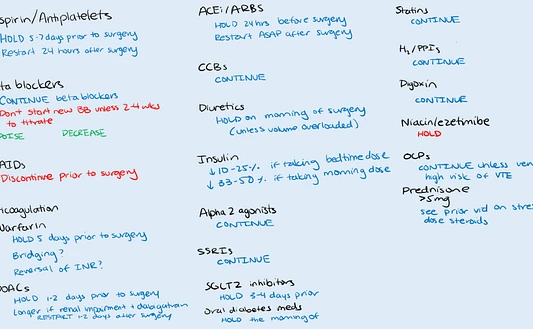 spirin/Antiplatelets
HOLD 5-7 days prior to surgery
Restart 24 hours after surgery
ta blockers
CONTINUE beta blockers
Don't start new BB unless 2-4 wks
to titrate
OISE DECREASE
AIDs
Discontinue prior to surgery
icoagulation
Warfarin
HOLD 5 days prior to surgery
Bridging?
Reversal of INR?
OACs
HOLD 1-2 days prior to surgery
Longer if renal impairment + dabigatran
RESTART 1-2 days after surgery
ACEi/ARBS
HOLD 24hrs before surgery
Restart ASAP after surgery
CCBs
CONTINUE
Diuretics
HOLD on morning of surgery
(unless volume overloaded)
Insulin
↓10-25% if taking bedtime dose
↓ 33-50% if taking morning dose
Alpha 2 agonists
CONTINUE
SSRIs
CONTINUE
SGLT2 inhibitors
HOLD 3-4 days prior
Oral diabetes meds
HOLD the morning of
Statins
CONTINUE
H₂/PPIs
CONTINUE
Digoxin
CONTINUE
Niacin/ezetimibe
HOLD
OCPs
CONTINUE unless ver
high risk of VTE
Prednisone
>5mg
see prior vid on stres
dose steroids